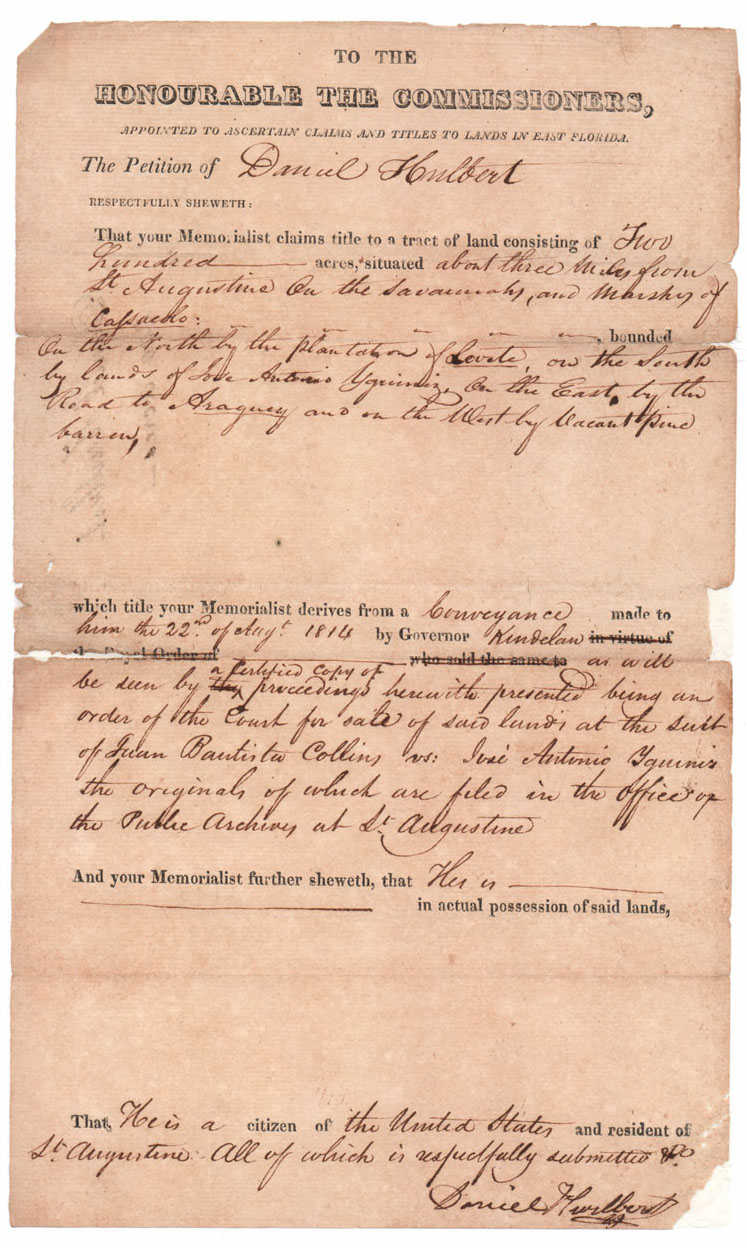 TO THE
HONOURABLE THE COMMISSIONERS,
APPOINTED TO ASCERTAIN CLAIMS AND TITLES TO LANDS IN EAST FLORIDA.
The Petition of Daniel Hulbert
RESPECTFULLY SHEWETH:
That your Memorialist claims title to a tract of land consisting of Two
hundred acres, situated about three Miles from
St. Augustine On the Savannahs, and Marshes of
, bounded
On the North by the plantation of on the South
by lands of Jose Antonio Yguiniz, On the East, by the
Road to Araguey and on the West by Vacant pine
barren,
which title your Memorialist derives from a Conveyance made to
him the 22nd of Augt 1814 by Governor Kindelan in virtue of
the Royal Order of who sold the same to as will
a Certified Copy of
be seen by the proceedings herewith presented being an
order of the Court for sale of said lands at the suit
of Juan Bautista Collins vs: José Antonio Yguiniz
the originals of which are filed in the office of
the Public Archives at St Augustine
And your Memorialist further sheweth, that He is
in actual possession of said lands,
That, He is a citizen of the United States and resident of
St Augustine. All of which is respectfully submitted &c.
Daniel Hurlbert